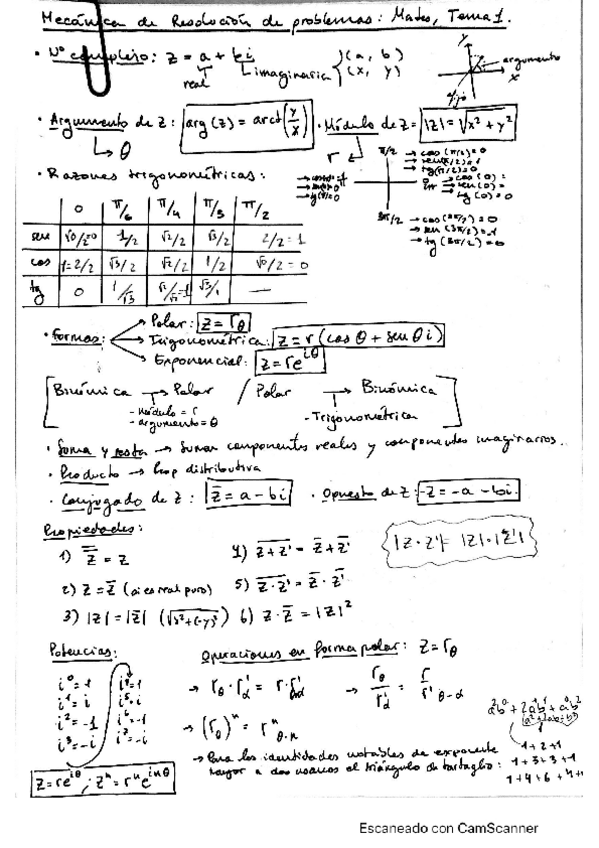 Mecánica de Resolución de problemas: Mates, Tema 1.
· Nº complejo: z = a + bi
real
imaginaria
(a, b)
(x, y)
y
argumento
x
· Argumento de z: arg(z) = arct(y/x)
↳ θ
· Módulo de z = |z| = √x² + y²
r
· Razones trigonométricas:
π/2 → cos(π/2)=0
→ sen(π/2)=1
→ cos(0)=
→ sen(0)=
→ tg(0)=0
3π/2 → cos(3π/2)=0
→ sen(3π/2)=-1
→ tg(3π/2)=0
0 π/6 π/4 π/3 π/2
sen √0/2=0 1/2 √2/2 √3/2 2/2=1
cos 1=2/2 √3/2 √2/2 1/2 √0/2=0
tg 0 1/√3 √2/√2=1 √3/1 —
· Formas:
→ Polar: z = rθ
→ Trigonométrica: z = r(cosθ + senθ i)
→ Exponencial: z = re^iθ
[Binómica → Polar / Polar → Binómica]
- módulo = r
- argumento = θ
- Trigonométrica
· Suma y resta → Sumar componentes reales y componentes imaginarios.
· Producto → Prop distributiva
· Conjugado de z: z̅ = a - bi · Opuesto de z: -z = -a - bi.
Propiedades:
1) z̿ = z
4) z+z' = z̅ + z̅'
|z·z'| = |z|·|z'|
2) z = z̅ (si es real puro)
5) z·z' = z̅·z̅'
3) |z| = |z̅| (√x²+(-y)²)
6) z·z̅ = |z|²
Potencias:
i⁰ = 1
i¹ = i
i² = -1
i³ = -i
i⁴ = 1
i⁵ = i
i⁶ = -1
i⁷ = -i
z = re^iθ ; zⁿ = rⁿe^inθ
Operaciones en forma polar: z = rθ
→ rθ · r'α = r·r'
→ rθ/r'α = r/r' θ-α
→ (rθ)ⁿ = rⁿ θ·n
→ Para las identidades notables de exponente
mayor a dos usamos el triángulo de tartaglia:
1+2+1
1+3+3+1
1+4+6+4+1
Escaneado con CamScanner